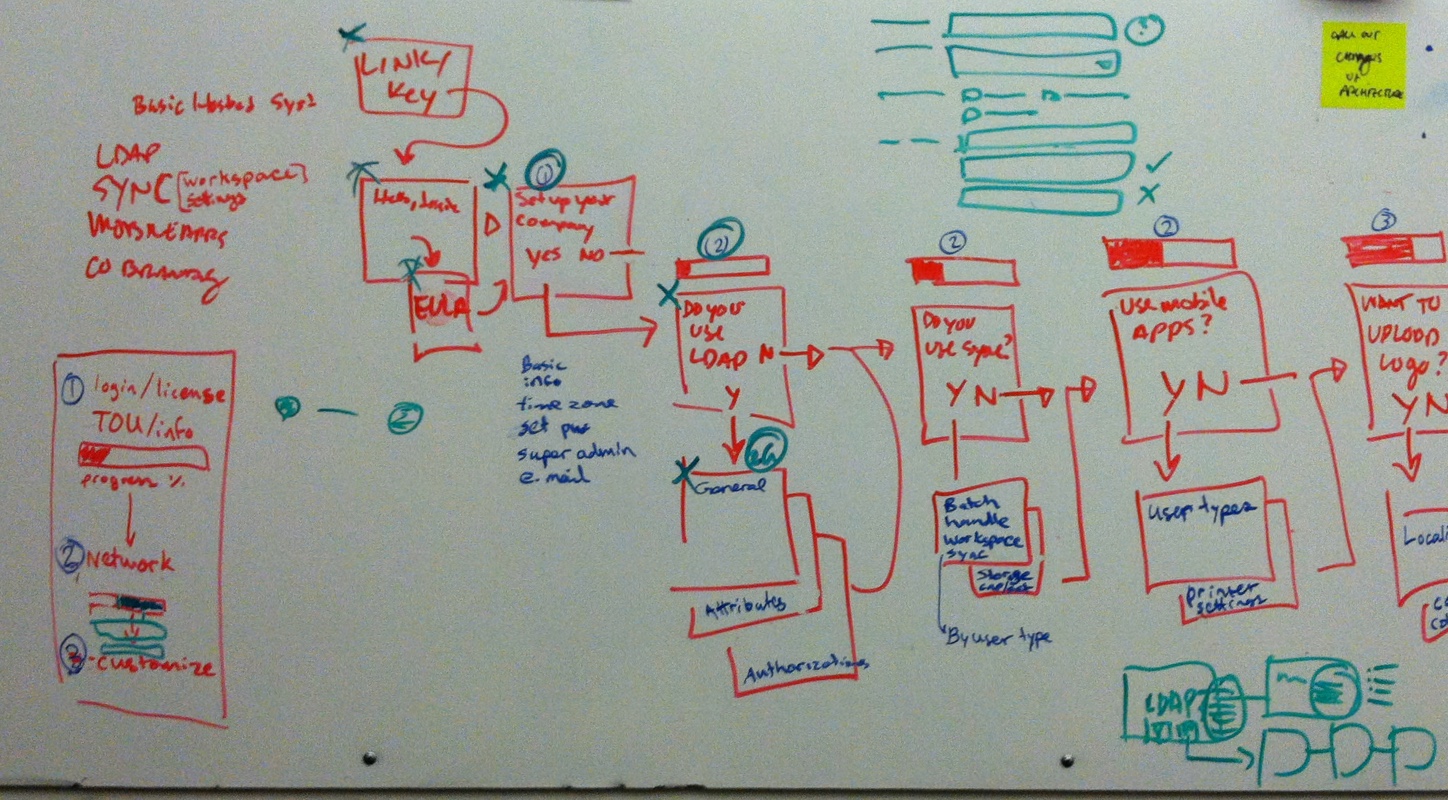 LINK/
Key
Basic Hosted Sys?
LDAP
SYNC [workspace]
settings
CO BRANDING
Hello,
EULA
①
Set up your
company
YES NO
Basic
info
time zone
set pw
super admin
e.mail
① login/license
TOU/info
progress %
② Network
③ -customize
②
(2)
DO YOU
USE
LDAP N
Y
General
Attributes
Authorizations
②
DO YOU
USE SYNC?
Y N
Batch
handle
workspace
sync
Storage
By user type
②
USE MOBILE
APPS?
Y N
User types
printer
settings
③
WANT TO
UPLOAD
LOGO?
Y N
Locali
?
CALL OUT
CHANGES
ARCHITECTURE
LDAP